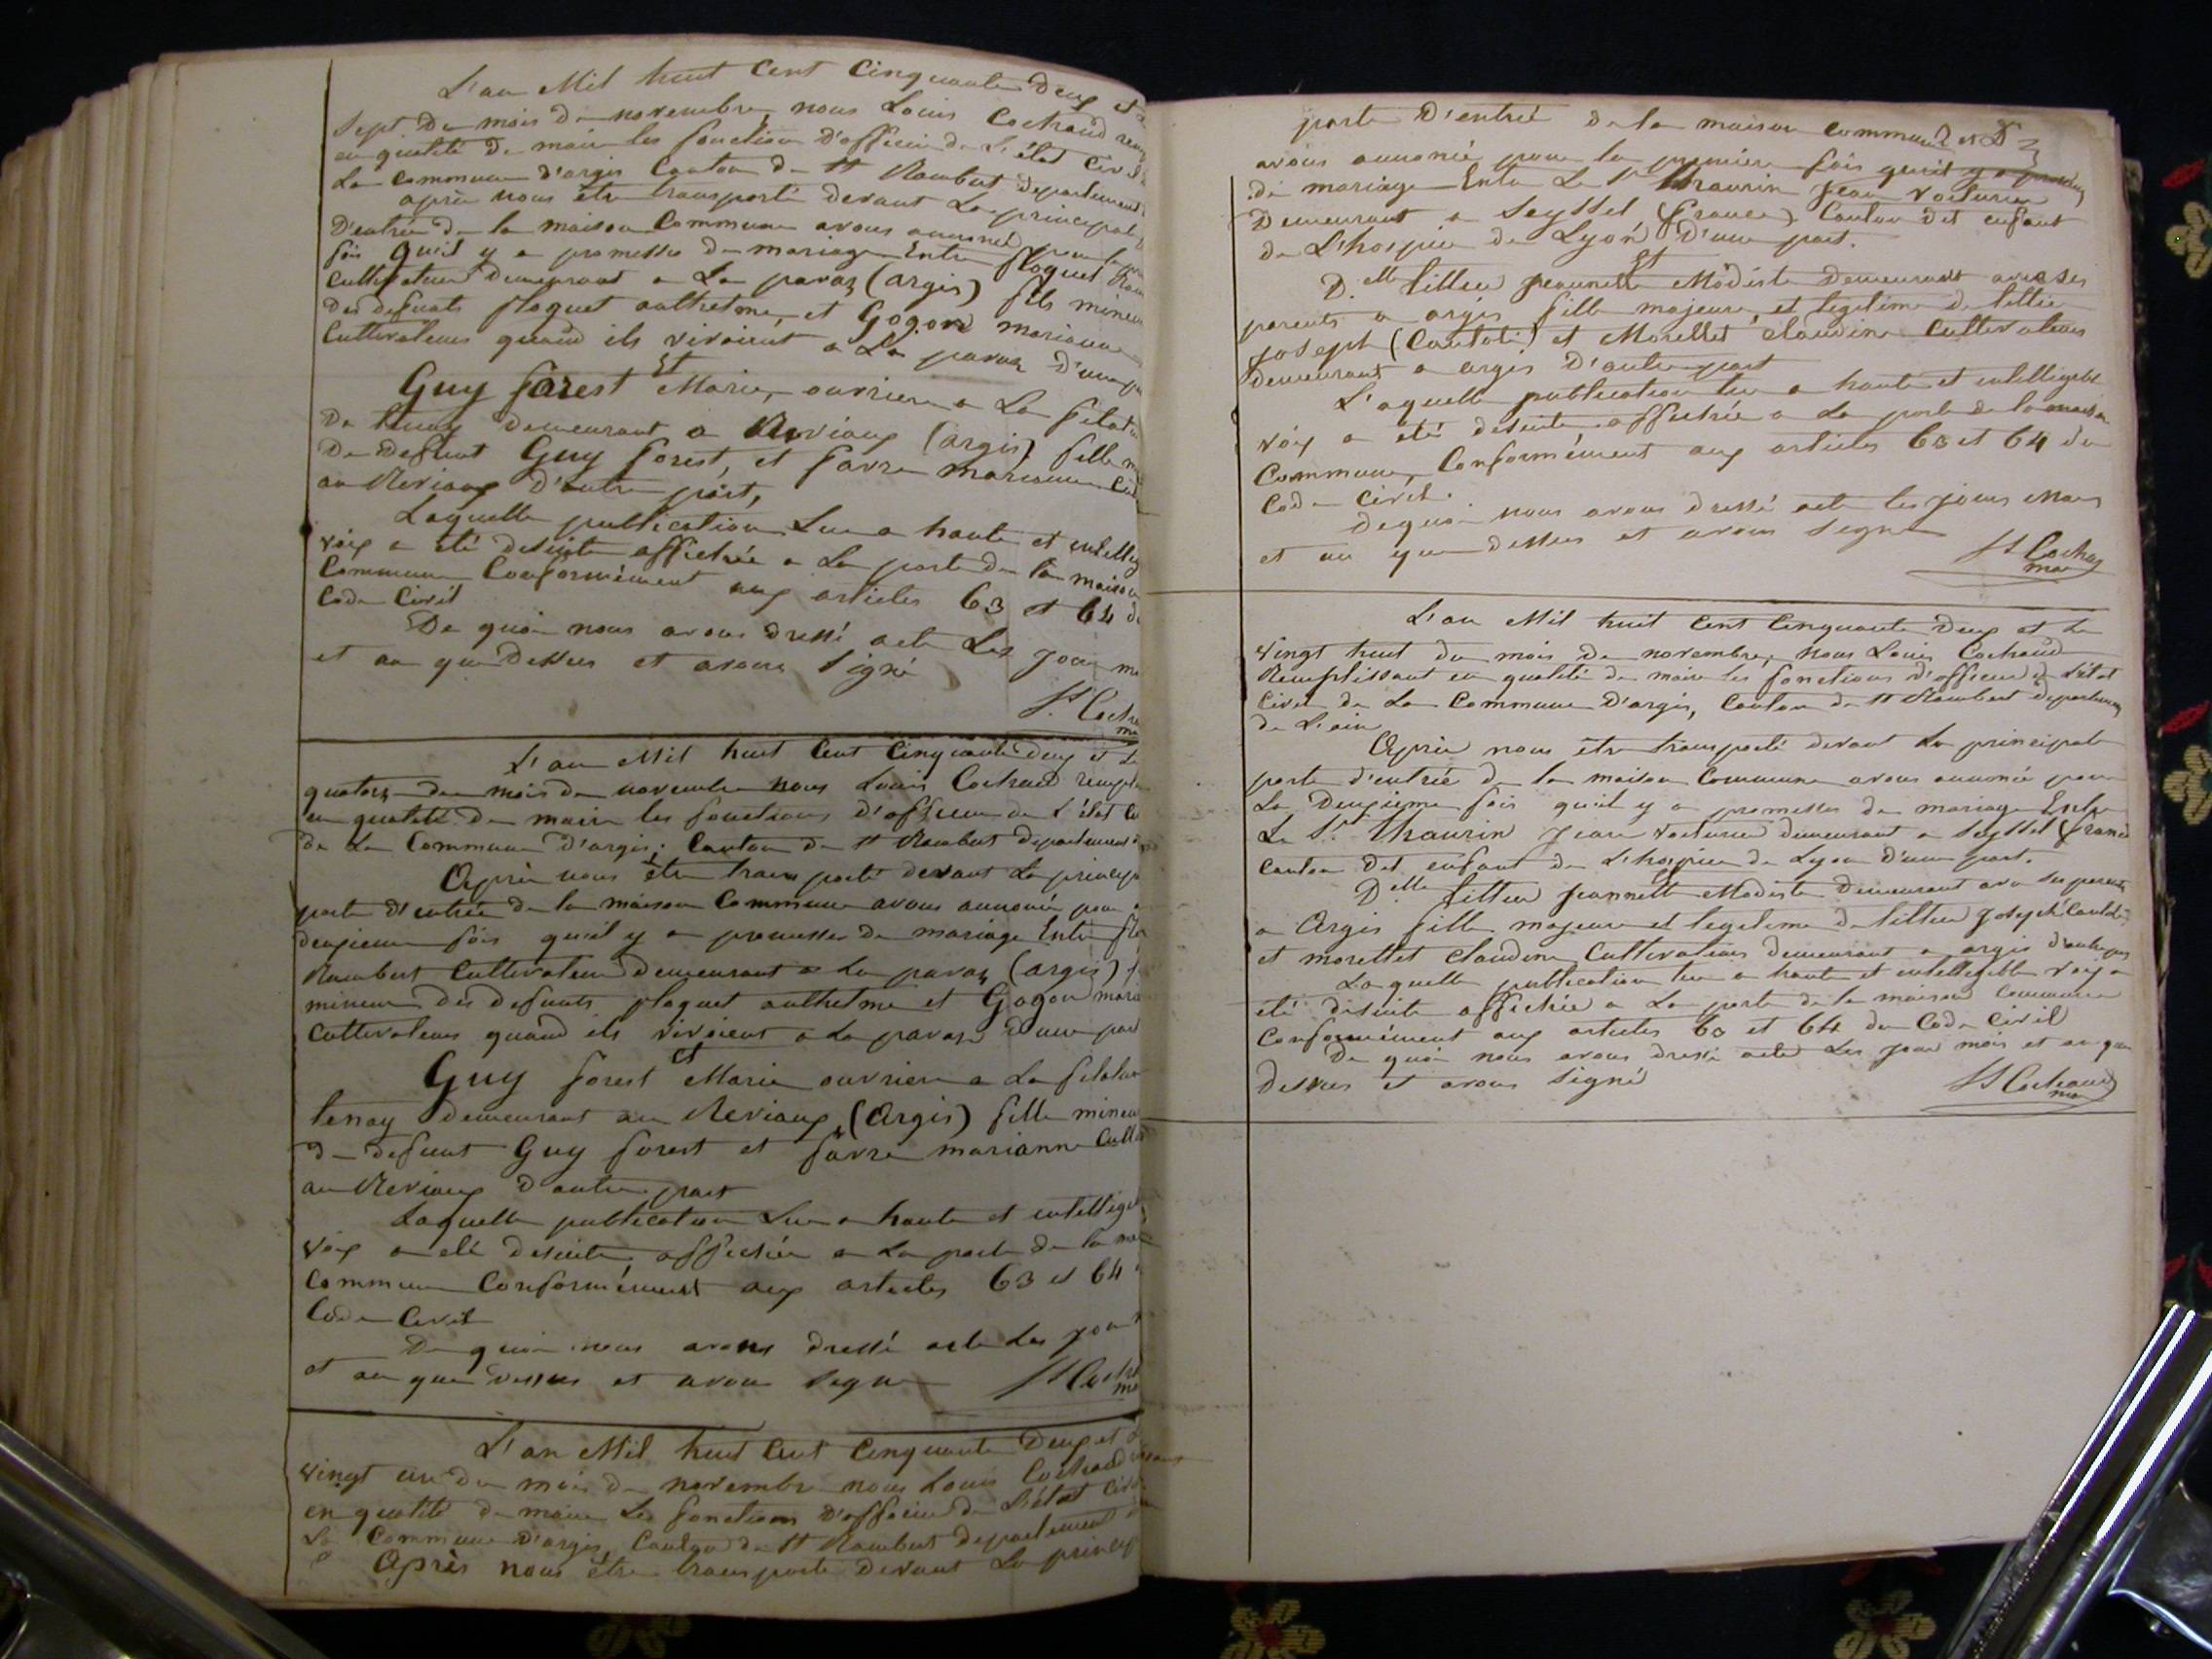 L'an Mil huit Cent Cinquante Deux et
Sept Du mois de novembre, nous Louis Cochaud
en qualité de maire les fonction D'officier de L'état Civil
La Commune d'argis Canton de St Rambert Departement
après nous être transporté devant La principale
D'entrée de la maison Commune avons annoncé pour la
fois Qu'il y a promesse de mariage Entre floquet
Cultivateur Demeurant a La pavaz (argis) fils mineur
des defunts floquet anthelme, et Gogon marianne
Cultivateurs quand ils vivaient a La pavaz D'une
Et
Guy forest Marie, ouvriere a La filat
De tenay Demeurant a Reviaux (argis) fille
De Deffunt Guy forest, et favre marianne
au Reviaux D'autre part,
Laquelle publication Lue a haute et intellig
voix a été desuite affichée a La porte de la maison
Commune Conformément aux articles 63 et 64 du
Code Civil
De quoi nous avons dressé acte Les jour
et an que Dessus et avons Signé
L'an Mil huit Cent Cinquante Deux et Le
quatorze du mois de novembre nous Louis Cochaud
en qualité de maire les fonctions d'officier de L'état
de La Commune D'argis, Canton de St Rambert Departement
Après nous être transporté devant La princip
porte d'entrée de la maison Commune avons annoncé pour
deuxieme fois qu'il y a promesse de mariage Entre
Rambert Cultivateur Demeurant a La pavaz (argis)
mineur des defunts floquet anthelme et Gogon
Cultivateurs quand ils vivaient a La pavaz D'une part
Et
Guy forest Marie ouvriere a La filature
tenay Demeurant au Reviaux (Argis) fille mineure
de defunt Guy forest et favre marianne
au Reviaux D'autre part
Laquelle publication Lue a haute et intelligi
voix a été desuite affichée a La porte de la
Commune Conformément aux articles 63 et 64
Code Civil
De quoi nous avons dressé acte Les jour
et an que dessus et avons Signé
L'an Mil huit Cent Cinquante Deux et
vingt un du mois de novembre nous Louis Cochaud
en qualité de maire Les fonctions D'officier de L'état Civil
La Commune D'argis, Canton de St Rambert Departement
Après nous être transporté Devant La princip
porte D'entrée de la maison commune
avons annoncé pour la premiere fois qu'il y a
de mariage Entre Le Sr Thaurin Jean Voiturier
Demeurant a Seyssel (france) Canton dit enfant
de L'hospice de Lyon D'une part.
Et
Delle tillier Jeannette Modeste Demeurant avec Ses
parents a argis fille majeure, et legitime de tillier
Joseph et Morellet Claudine Cultivateurs
Demeurant a argis D'autre part
L'aquelle publication lue a haute et intelligible
voix a été desuite affichée a La porte de la maison
Commune, Conformément aux articles 63 et 64 du
Code Civil.
Dequoi nous avons dressé acte les jour Mois
et an que dessus et avons Signé
L'an Mil huit Cent Cinquante Deux et Le
Vingt huit du mois de novembre, nous Louis Cochaud
Remplissant en qualité de maire les fonctions d'officier de L'état
Civil de La Commune D'argis, Canton de St Rambert Departement
de L'ain
Après nous être transporté devant La principale
porte d'entrée de la maison Commune avons annoncé pour
La Deuxieme fois qu'il y a promesse de mariage Entre
Le Sr Thaurin Jean Voiturier demeurant a Seyssel (france
Canton dit enfant de L'hospice de Lyon D'une part.
Et
Delle tillier Jeannette Modeste Demeurant avec Ses parents
a Argis fille majeure et legitime de tillier Joseph
et morellet Claudine Cultivateurs demeurant a argis d'autre part
Laquelle publication lue a haute et intelligible voix a
été desuite affichée a La porte de la maison Commune
Conformément aux articles 63 et 64 du Code Civil
De quoi nous avons dressé acte Les jour mois et an que
dessus et avons Signé